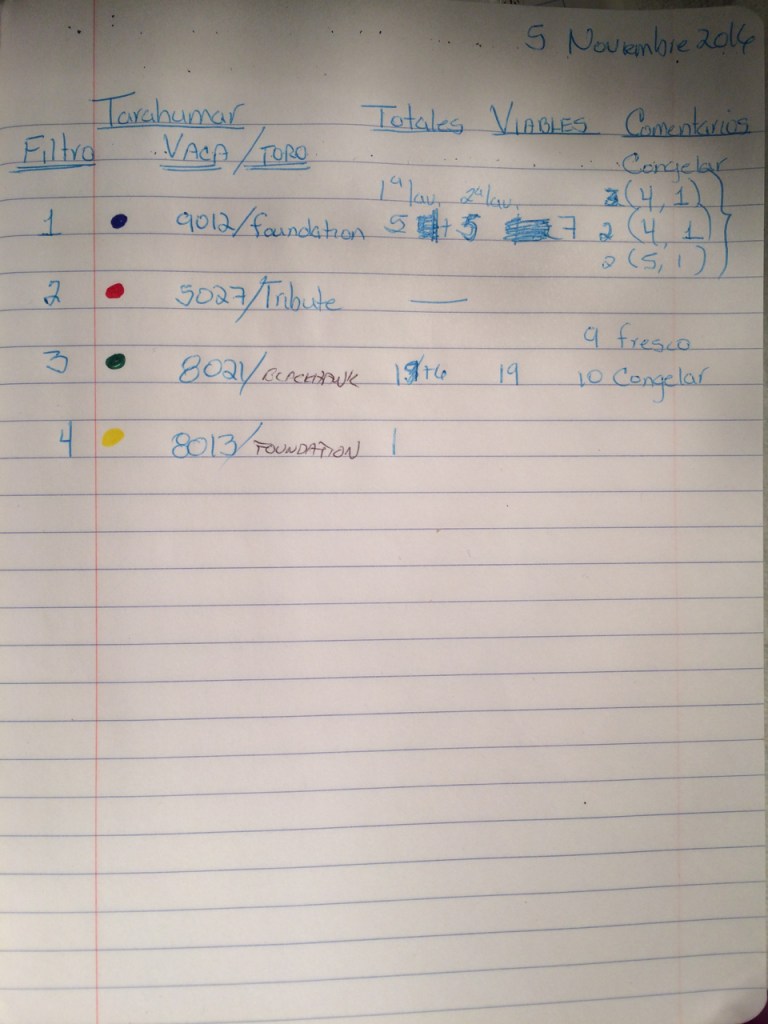 5 Noviembre 2016
Tarahumar Totales VIABLES Comentarios
Filtro VACA/TORO Congelar
1ª lav. 2ª lav. (4, 1)
1 9012/foundation 5 + 5 7 2 (4, 1)
2 (5, 1)
2 5027/Tribute —
9 fresco
3 8021/BLACKHAWK +6 19 10 Congelar
4 8013/FOUNDATION 1